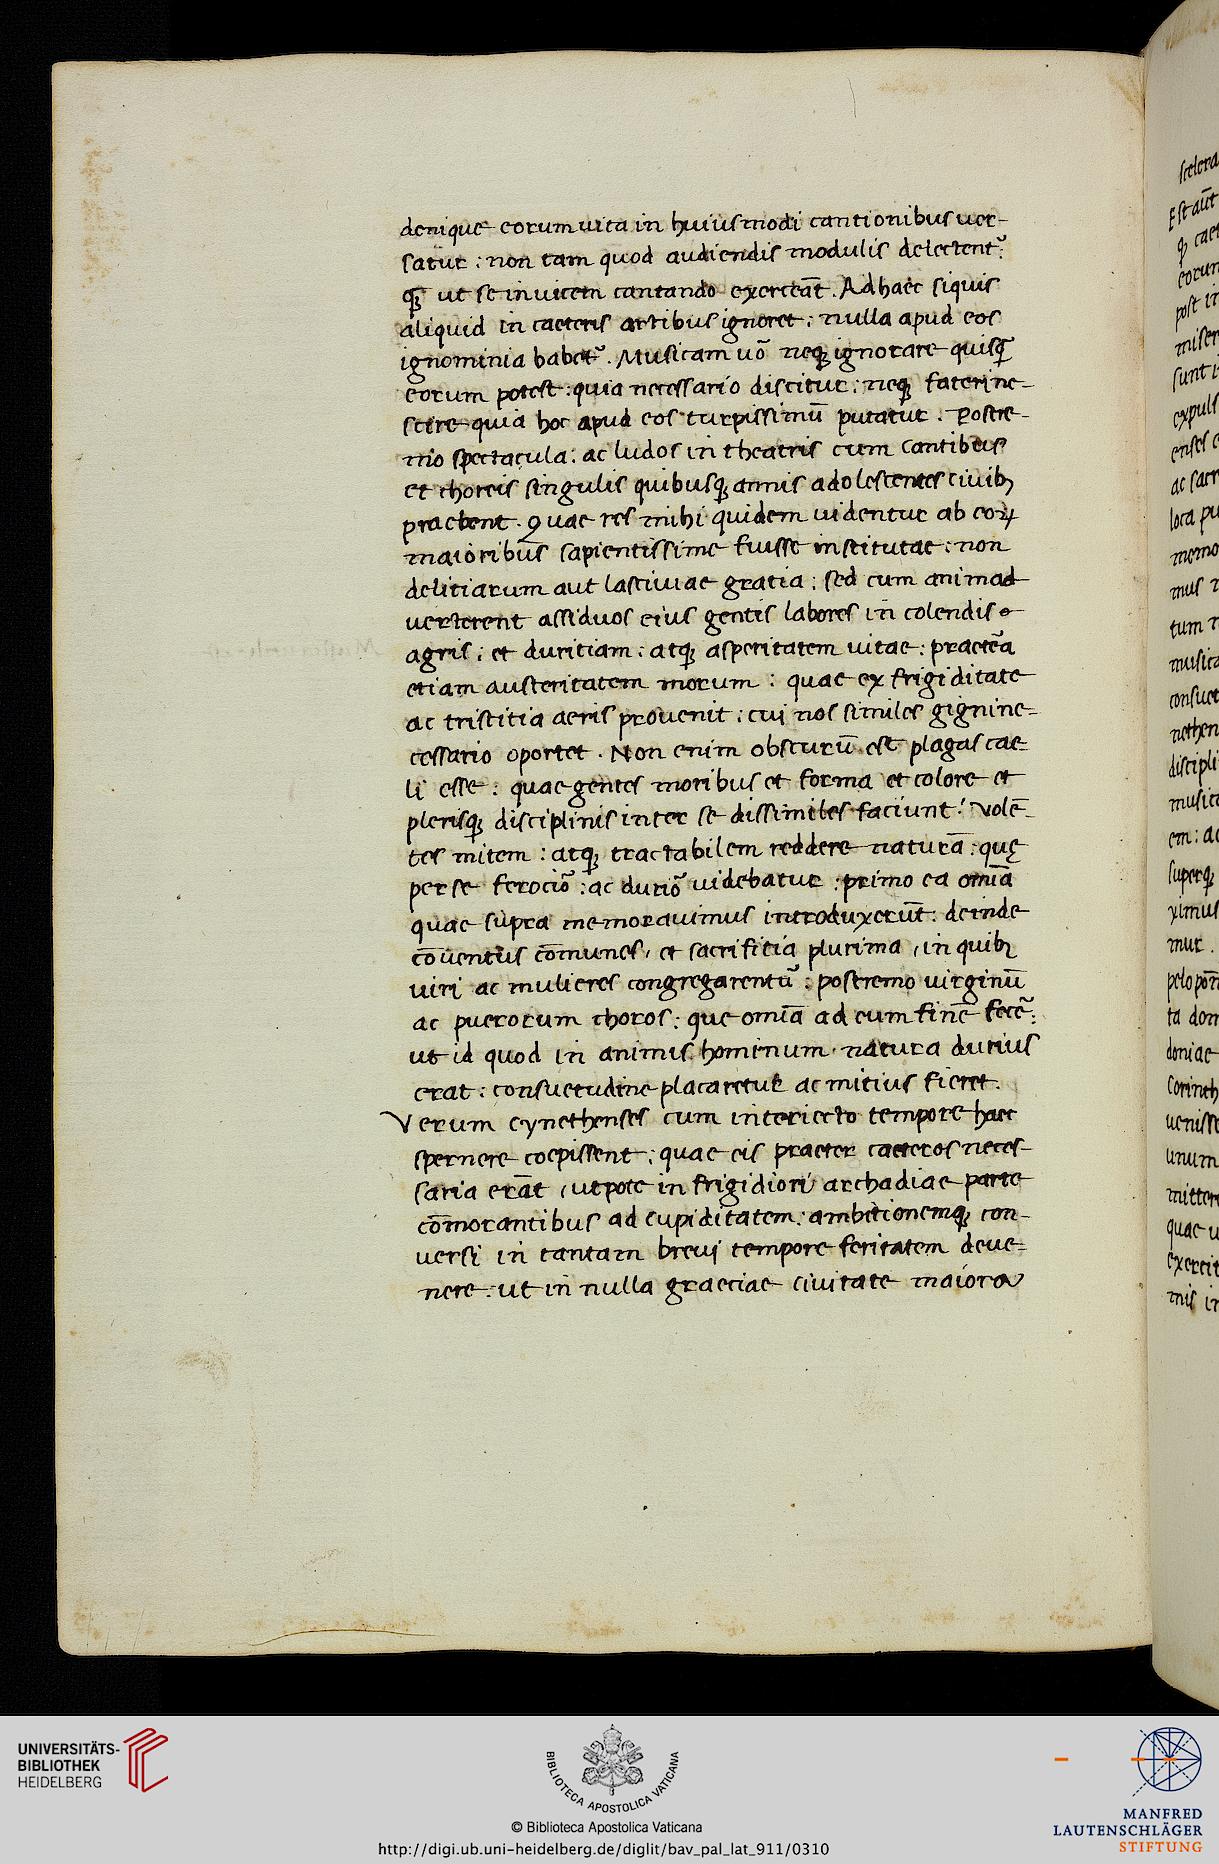 denique eorum uita in huiusmodi cantionibus uer-
satur : non tam quod audiendis modulis delectent᷑
qȝ ut se inuicem cantando exerceāt . Ad haec siquis
aliquid in caeteris artibus ignoret : nulla apud eos
ignominia habet᷑ . Musicam uō neqȝ ignorare quisqȝ
eorum potest : quia necessario discitur : neqȝ fateri ne-
scire quia hoc apud eos turpissimū putatur . Postre-
mo spectacula : ac ludos in theatris cum cantibus
et choreis singulis quibusqȝ annis adolescentes ciuibȝ
praebent . Quae res mihi quidem uidentur ab eoꝝ
maioribus sapientissime fuisse institutae : non
delitiarum aut lasciuiae gratia : sed cum animad
uerterent assiduos eius gentis labores in colendis
agris : et duritiam : atqȝ asperitatem uitae : praeteā
etiam austeritatem morum : quae ex frigiditate
ac tristitia aeris prouenit : cui nos similes gigni ne-
cessario oportet . Non enim obscurū est plagas cae-
li esse : quae gentes moribus et forma et colore et
plerisqȝ disciplinis inter se dissimiles faciunt : Volē-
tes mitem : atqȝ tractabilem reddere naturā : quę
per se ferociō : ac duriō uidebatur : primo ea omīa
quae supra memorauimus introduxerūt : deinde
cōuentus cōmunes , et sacrificia plurima , in quibȝ
uiri ac mulieres congregarentu᷑ : postremo uirginū
ac puerorum choros : que omīa ad eum finē fecē :
ut id quod in animis hominum natura durius
erat : consuetudine placaretur ac mitius fieret .
Verum cynethenses cum interiecto tempore haec
spernere coepissent : quae eis praeter caeteros neces-
saria erāt , utpote in frigidiori archadiae parte
cōmorantibus ad cupiditatem : ambitionemqȝ con-
uersi in tantam breui tempore feritatem deue-
nere : ut in nulla graeciae ciuitate maiora
scelera
Est aūt
qȝ cae
eorum
post in
miser
sunt i
expuls
enses e
ac sacr
loca pu
memo
mus
tum
musica
consuet
nethen
discipli
musica
em : ac
superqȝ
ximus
mur .
pelopoñ
ta dom
doniae
Corinth
uenisse
unum
mitter
quae u
exercit
mis in
UNIVERSITÄTS-
BIBLIOTHEK
HEIDELBERG
BIBLIOTECA APOSTOLICA VATICANA
© Biblioteca Apostolica Vaticana
http://digi.ub.uni-heidelberg.de/diglit/bav_pal_lat_911/0310
MANFRED
LAUTENSCHLÄGER
STIFTUNG